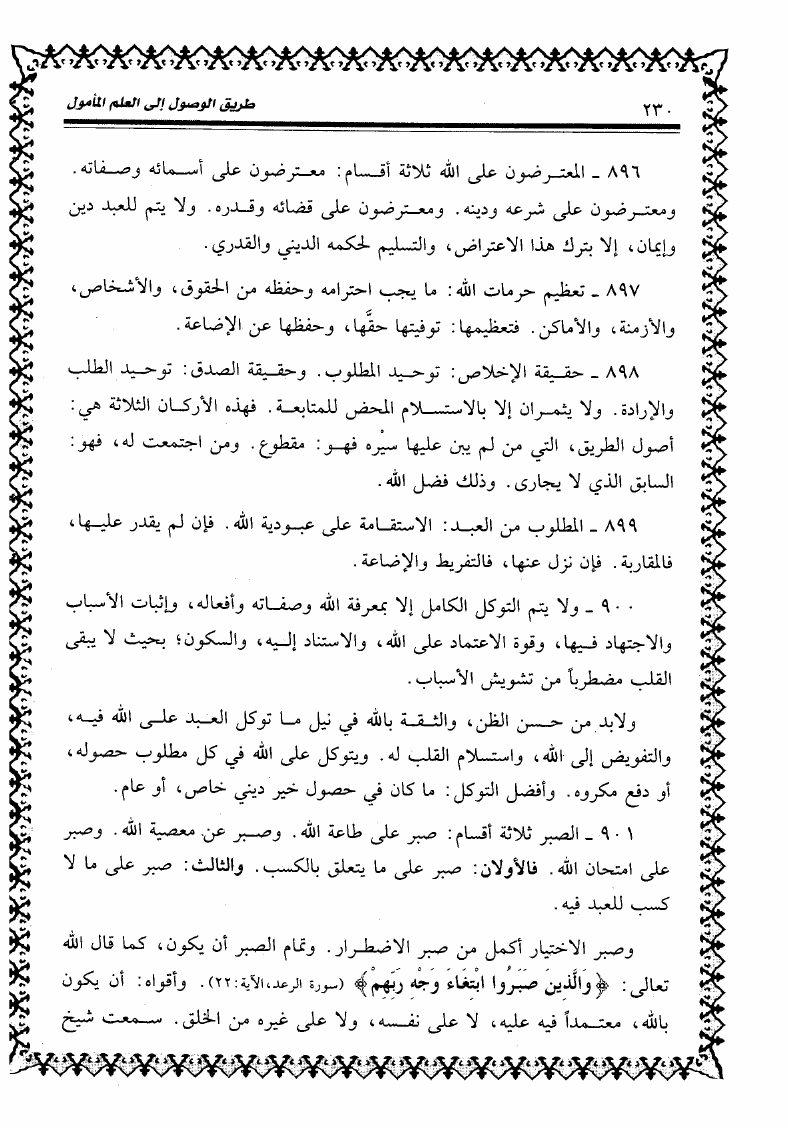 ٢٣٠
طريق الوصول إلى العلم المأمول
٨٩٦ ـ المعترضون على الله ثلاثة أقسام: معترضون على أسمائه وصفاته.
ومعترضون على شرعه ودينه. ومعترضون على قضائه وقدره. ولا يتم للعبد دين
وإيمان، إلا بترك هذا الاعتراض، والتسليم لحكمه الديني والقدري.
٨٩٧ ـ تعظيم حرمات الله: ما يجب احترامه وحفظه من الحقوق، والأشخاص،
والأزمنة، والأماكن. فتعظيمها: توفيتها حقَّها، وحفظها عن الإضاعة.
٨٩٨ ـ حقيقة الإخلاص: توحيد المطلوب. وحقيقة الصدق: توحيد الطلب
والإرادة. ولا يثمران إلا بالاستسلام المحض للمتابعة. فهذه الأركان الثلاثة هي:
أصول الطريق، التي من لم يبن عليها سيْره فهو: مقطوع. ومن اجتمعت له، فهو:
السابق الذي لا يجارى. وذلك فضل الله.
٨٩٩ ـ المطلوب من العبد: الاستقامة على عبودية الله. فإن لم يقدر عليها،
فالمقاربة. فإن نزل عنها، فالتفريط والإضاعة.
٩٠٠ ـ ولا يتم التوكل الكامل إلا بمعرفة الله وصفاته وأفعاله، وإثبات الأسباب
والاجتهاد فيها، وقوة الاعتماد على الله، والاستناد إليه، والسكون؛ بحيث لا يبقى
القلب مضطرباً من تشويش الأسباب.
ولابد من حسن الظن، والثقة بالله في نيل ما توكل العبد على الله فيه،
والتفويض إلى الله، واستسلام القلب له. ويتوكل على الله في كل مطلوب حصوله،
أو دفع مكروه. وأفضل التوكل: ما كان في حصول خير ديني خاص، أو عام.
٩٠١ ـ الصبر ثلاثة أقسام: صبر على طاعة الله. وصبر عن معصية الله. وصبر
على امتحان الله. فالأولان: صبر على ما يتعلق بالكسب. والثالث: صبر على ما لا
كسب للعبد فيه.
وصبر الاختيار أكمل من صبر الاضطرار. وتمام الصبر أن يكون، كما قال الله
تعالى: ﴿وَالَّذِينَ صَبَرُوا ابْتِغَاءَ وَجْهِ رَبِّهِمْ﴾ (سورة الرعد،الآية:٢٢). وأقواه: أن يكون
بالله، معتمداً فيه عليه، لا على نفسه، ولا على غيره من الخلق. سمعت شيخ